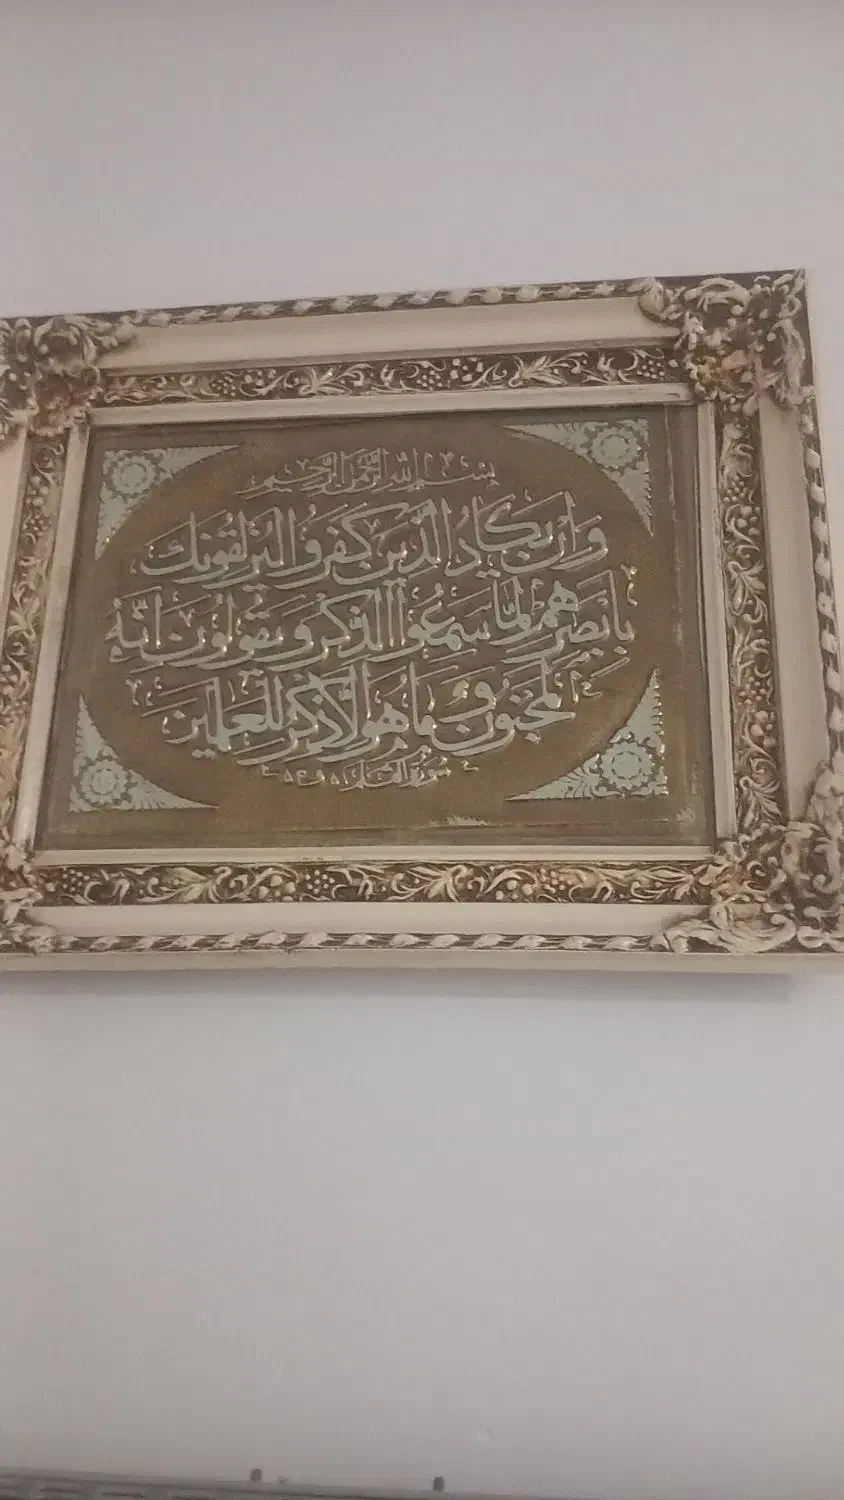 بسم الله الرحمن الرحيم
وان يكاد الذين كفروا ليزلقونك
بابصرهم لما سمعوا الذكر ويقولون انه
لمجنون وما هو الا ذكر للعلمين
سورة القلم